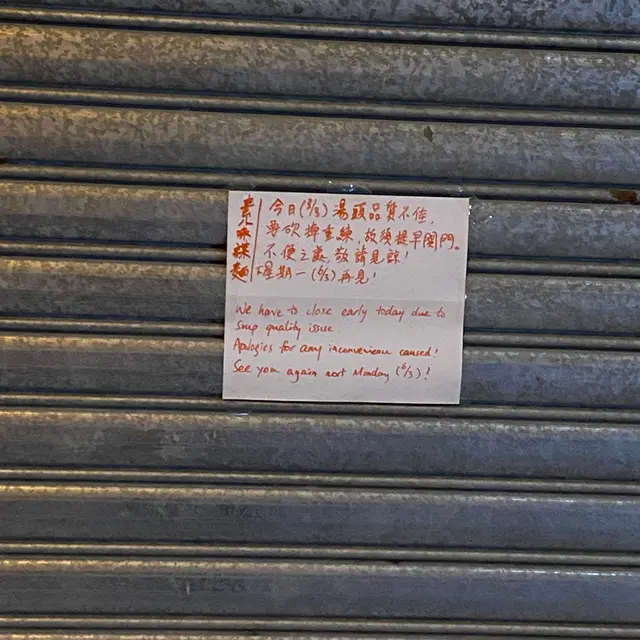 今日(3/3)湯頭品質不佳,
需砍掉重練,故須提早関門。
不便之處,敬請見諒!
星期一(6/3)再見!
We have to close early today due to
Soup quality issue.
Apologies for any inconvenience caused!
See you again next Monday (6/3)!